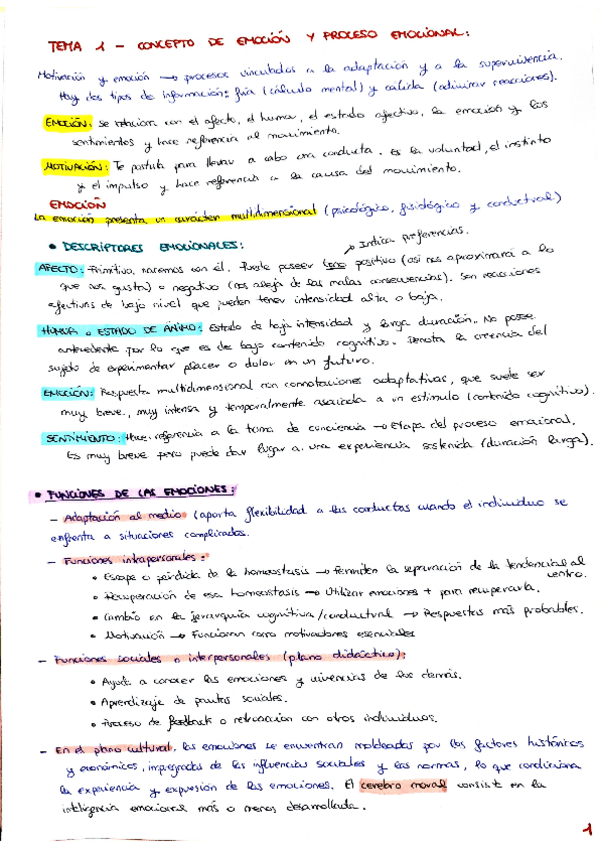 TEMA 1 - CONCEPTO DE EMOCIÓN Y PROCESO EMOCIONAL:
Motivación y emoción → procesos vinculados a la adaptación y a la supervivencia.
Hay dos tipos de información: fría (cálculo mental) y cálida (adivinar reacciones).
EMOCIÓN: se relaciona con el afecto, el humor, el estado afectivo, la emoción y los
sentimientos y hace referencia al movimiento.
MOTIVACIÓN: Te postula para llevar a cabo una conducta. Es la voluntad, el instinto
y el impulso y hace referencia a la causa del movimiento.
EMOCIÓN
La emoción presenta un carácter multidimensional (psicológico, fisiológico y conductual)
• DESCRIPTORES EMOCIONALES:
Indica preferencias.
AFECTO: Primitivo, nacemos con él. Puede poseer tono positivo (así nos aproximará a lo
que nos gusta) o negativo (nos aleja de las malas consecuencias). Son reacciones
afectivas de bajo nivel que pueden tener intensidad alta o baja.
HUMOR o ESTADO DE ÁNIMO: Estado de baja intensidad y larga duración. No posee
antecedente por lo que es de bajo contenido cognitivo. Denota la creencia del
sujeto de experimentar placer o dolor en un futuro.
EMOCIÓN: Respuesta multidimensional con connotaciones adaptativas, que suele ser
muy breve, muy intensa y temporalmente asociada a un estímulo (contenido cognitivo).
SENTIMIENTO: Hace referencia a la toma de conciencia → Etapa del proceso emocional.
Es muy breve pero puede dar lugar a una experiencia sostenida (duración larga).
• FUNCIONES DE LAS EMOCIONES:
- Adaptación al medio (aporta flexibilidad a las conductas cuando el individuo se
enfrenta a situaciones complicadas.
- Funciones intrapersonales:
• Escape o pérdida de la homeostasis → Permiten la separación de la tendencia al
centro.
• Recuperación de esa homeostasis → Utilizar emociones + para recuperarla.
• Cambio en la jerarquía cognitiva/conductual → Respuestas más probables.
• Motivación → Funcionan como motivadores esenciales
- Funciones sociales o interpersonales (plano didáctico):
• Ayuda a conocer las emociones y vivencias de los demás.
• Aprendizaje de pautas sociales.
• Proceso de feedback o retroacción con otros individuos.
- En el plano cultural, las emociones se encuentran moldeadas por los factores históricos
y económicos, impregnadas de las influencias sociales y las normas, lo que condiciona
la experiencia y expresión de las emociones. El cerebro moral consiste en la
inteligencia emocional más o menos desarrollada.
1